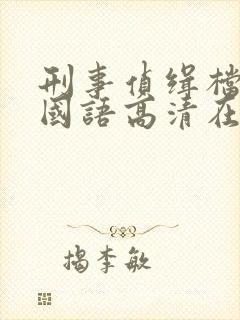 刑事偵緝檔
國語高清在
揭李敏